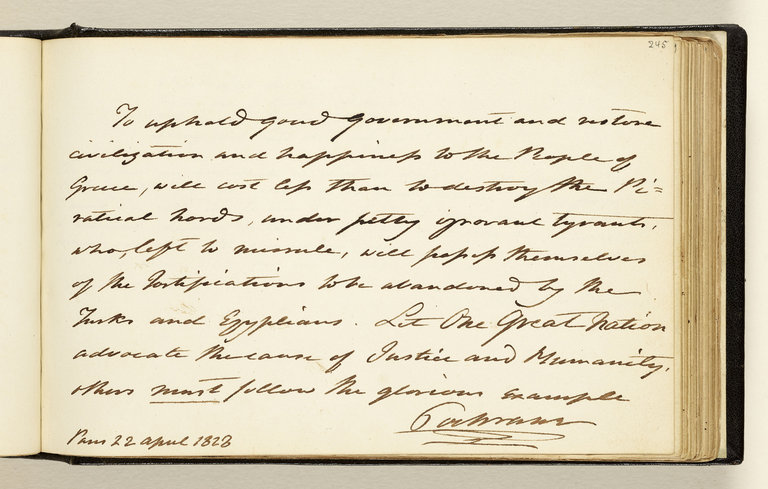 245
To uphold good Government and restore
civilization and happiness to the People of
Greece, will cost less than to destroy the Pi=
ratical hords, under petty ignorant tyrants,
who, left to misrule, will possess themselves
of the fortifications to be abandoned by the
Turks and Egyptians. Let One Great Nation
advocate the cause of Justice and Humanity,
others must follow the glorious example
Cochrane
Paris 22 April 1828